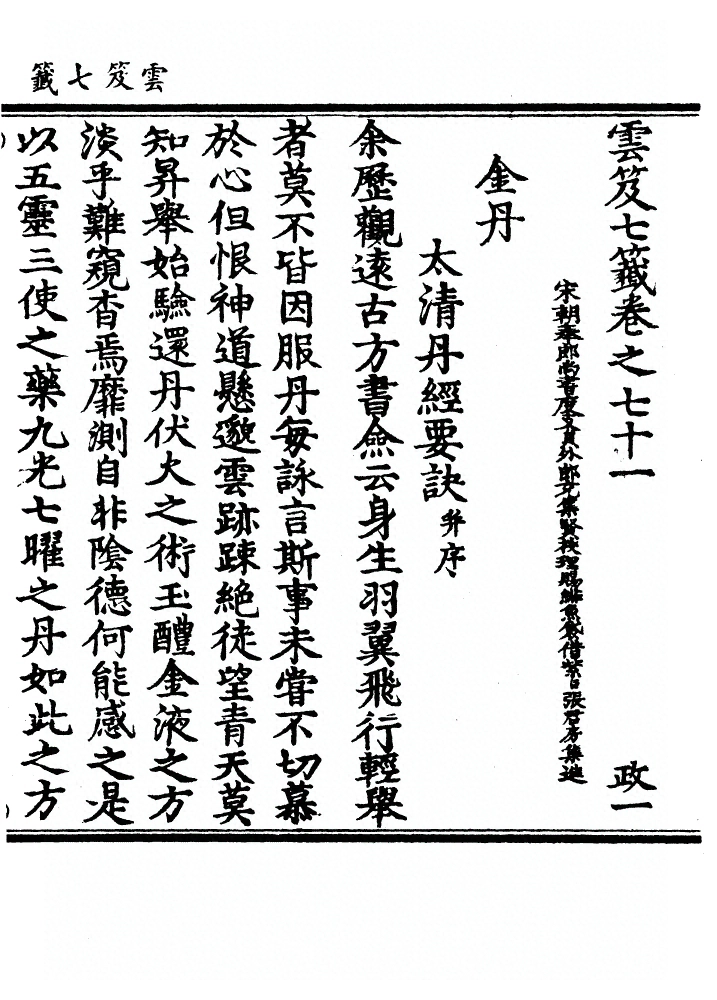 雲笈七籤
雲笈七籤卷之七十一 政一
宋朝奉郎尚書度支員外郎充集賢校理賜緋魚袋借紫臣張君房集進
金丹
太清丹經要訣 并序
余歷觀遠古方書僉云身生羽翼飛行輕舉
者莫不皆因服丹每詠言斯事未嘗不切慕
於心但恨神道懸邈雲跡踈絕徒望青天莫
知昇舉始驗還丹伏火之術玉醴金液之方
淡乎難窺杳焉靡測自非陰德何能感之是
以五靈三使之藥九光七曜之丹如此之方